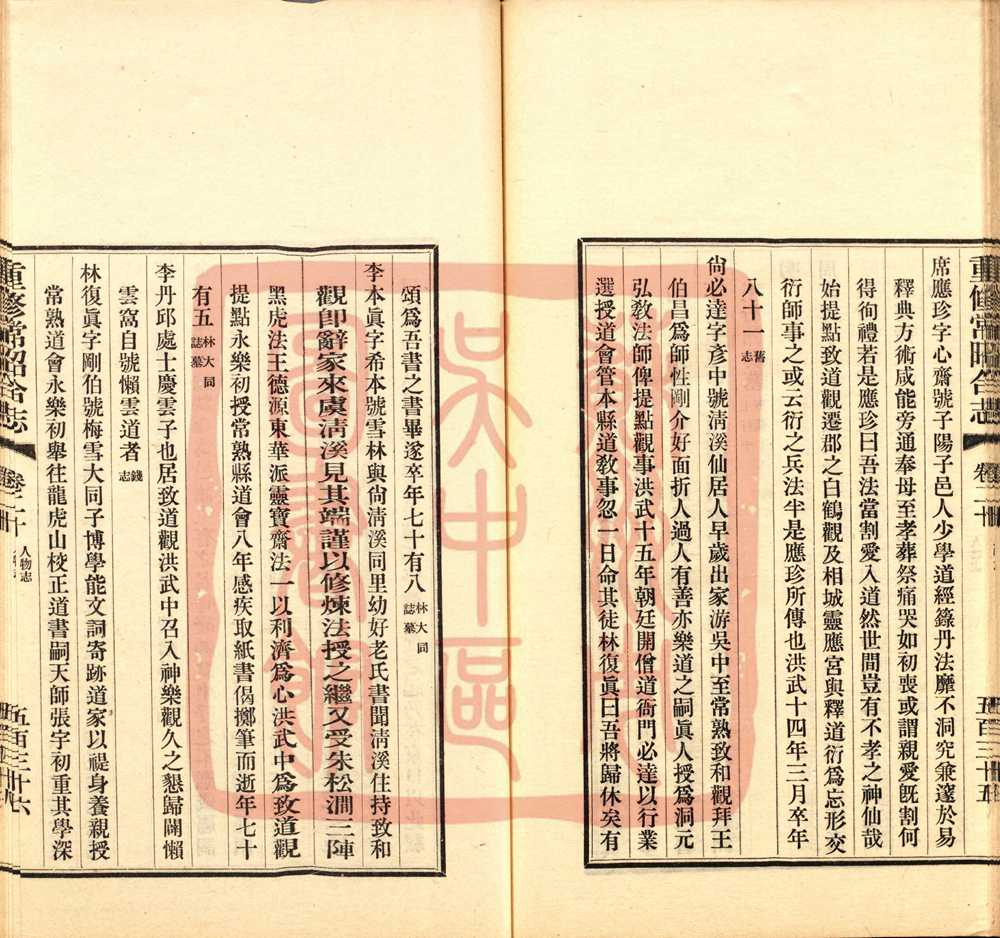 重修常昭合志
卷二十
五百三十五
席應珍字心齋號子陽子邑人少學道經籙丹法靡不洞究兼邃於易
釋典方術咸能旁通奉母至孝葬祭痛哭如初喪或謂親愛旣割何
得徇禮若是應珍曰吾法當割愛入道然世間豈有不孝之神仙哉
始提點致道觀遷郡之白鶴觀及相城靈應宮與釋道衍爲忘形交
衍師事之或云衍之兵法半是應珍所傳也洪武十四年三月卒年
八十一舊志
尙必達字彥中號淸溪仙居人早歲出家游吳中至常熟致和觀拜王
伯昌爲師性剛介好面折人過人有善亦樂道之嗣眞人授爲洞元
弘敎法師俾提點觀事洪武十五年朝廷開僧道衙門必達以行業
選授道會管本縣道敎事忽一日命其徒林復眞曰吾將歸休矣有
頌爲吾書之書畢遂卒年七十有八林大同誌墓
李本眞字希本號雪林與尙淸溪同里幼好老氏書聞淸溪住持致和
觀卽辭家來虞淸溪見其端謹以修煉法授之繼又受朱松澗三陣
黑虎法王德源東華派靈寶齋法一以利濟爲心洪武中爲致道觀
提點永樂初授常熟縣道會八年感疾取紙書偈擲筆而逝年七十
有五林大同誌墓
李丹邱處士慶雲子也居致道觀洪武中召入神樂觀久之懇歸闢懶
雲窩自號懶雲道者錢志
林復眞字剛伯號梅雪大同子博學能文詞寄跡道家以禔身養親授
常熟道會永樂初舉往龍虎山校正道書嗣天師張宇初重其學深
重修常昭合志
卷二十
人物志
五百三十六
蘇州
吳中區
圖書館